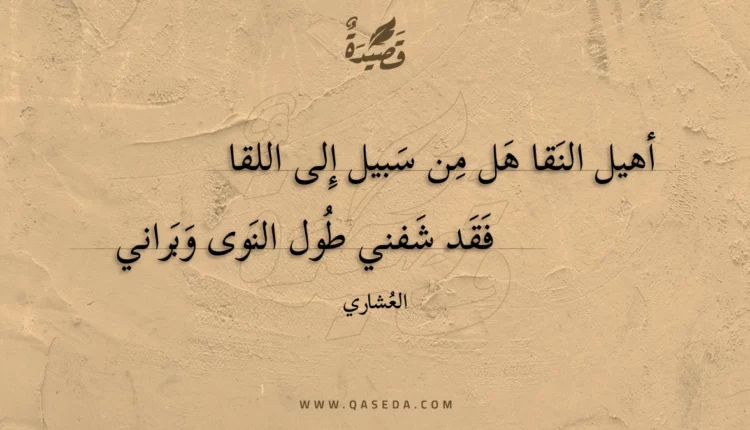 قَصِيدَةٌ
أهيل النَقا هَل مِن سَبيل إِلى اللقا
فَقَد شَفني طُول النَوى وَبَراني
العُشاري
WWW.QASEDA.COM